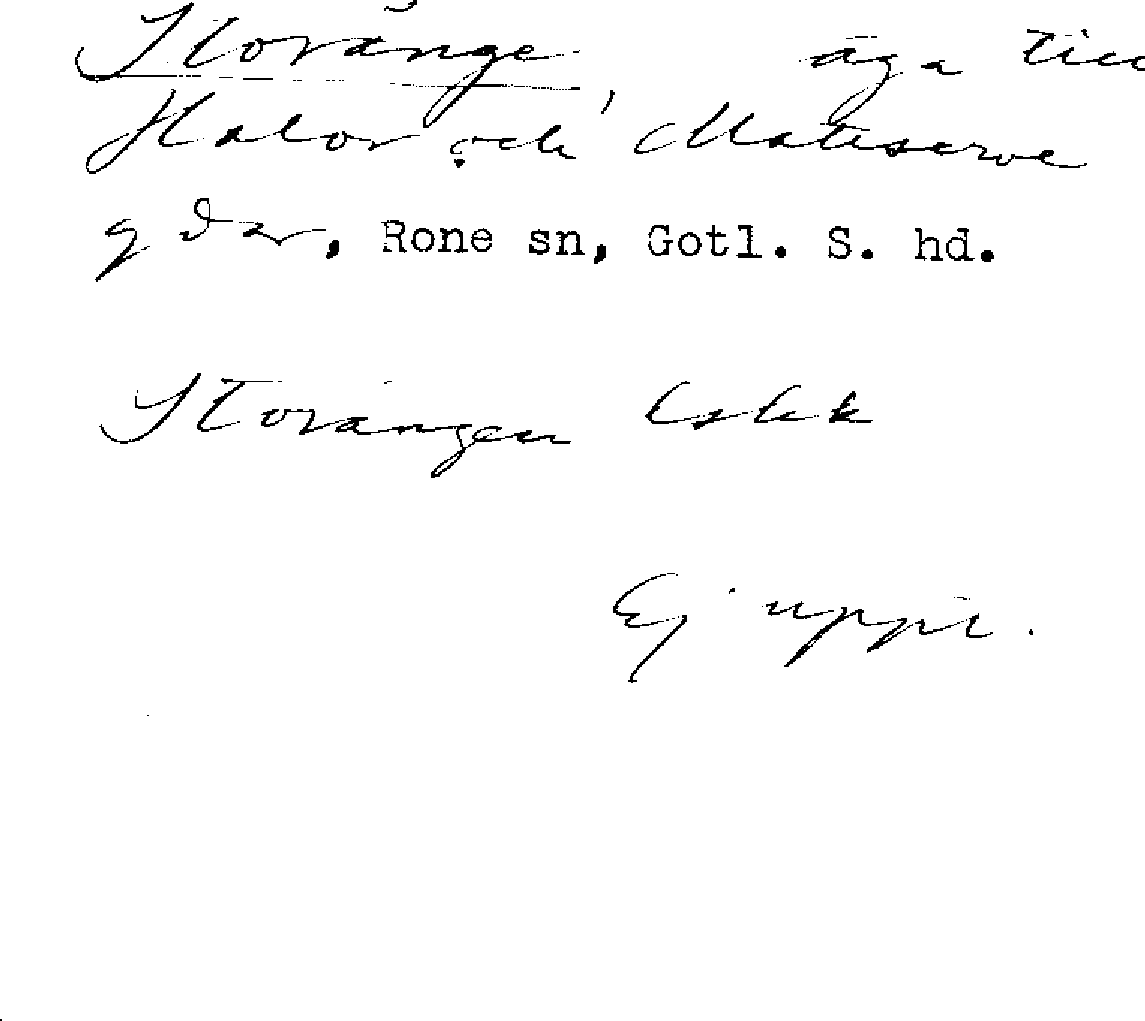 Storänge äga till
Halor och Matiserve
gdar, Rone sn, Gotl. S. hd.
Storängen Lskk
Ej uppt.